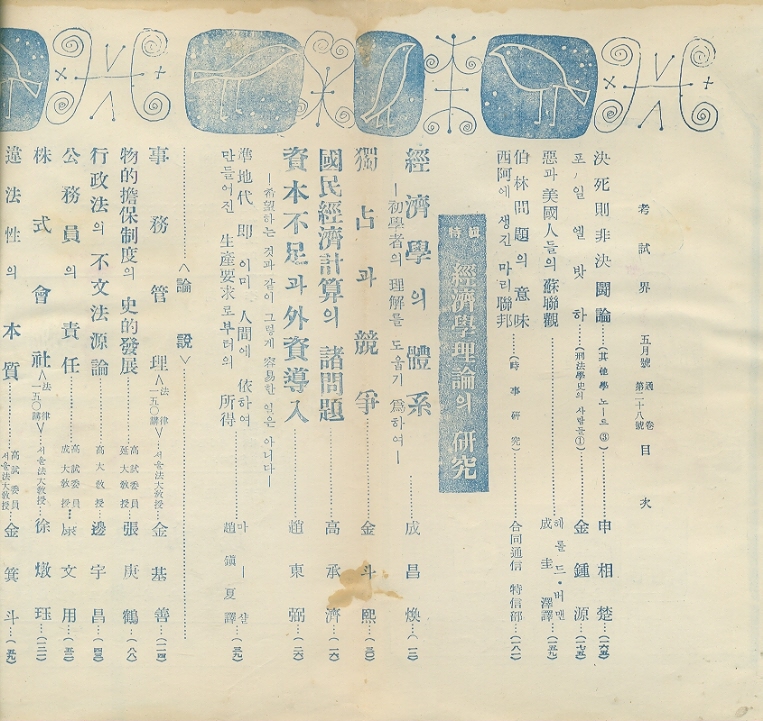 考試界 五月號 通卷 第二十八號 目次
決死則非決鬪論…(其他學 노ー트 ③)…申相楚…(一六五)
포ㆍ일엘밧하…(刑法學史의 사람들 ①)…金鍾源…(一七五)
惡과 美國人들의 蘇聯觀…헤롤드・버맨
成圭澤譯…(一五九)
伯林問題의 意味
西阿에 생긴 마리聯邦…(時事硏究)…合同通信 特信部…(一八一)
特輯 經濟學理論의 硏究
經濟學의 體系…成昌煥…(一二)
ー初學者의 理解를 도웁기 爲하여ー
獨占과 競爭…金斗熙…(三〇)
國民經濟計算의 諸問題…高承濟…(一六)
資本不足과 外資導入…趙東弼…(二六)
ー希望하는 것과 같이 그렇게 容易한 일은 아니다ー
準地代 即 이미 人間에 依하여
만들어진 生產要求로부터의 所得…마ー샬
趙鎭夏譯…(三九)
<論說>
事務管理<法律一五〇講>…서울法大敎授…金基善…(一一四)
物的擔保制度의 史的發展…高試委員 延大敎授…張庚鶴…(八八)
行政法의 不文法源論…高大敎授…邊宇昌…(四五)
公務員의 責任…高試委員 成大敎授…文用…(五二)
株式會社<法律一五〇講>…서울法大敎授…徐燉珏…(一二一)
違法性의 本質…高試委員 서울法大敎授…金箕斗…